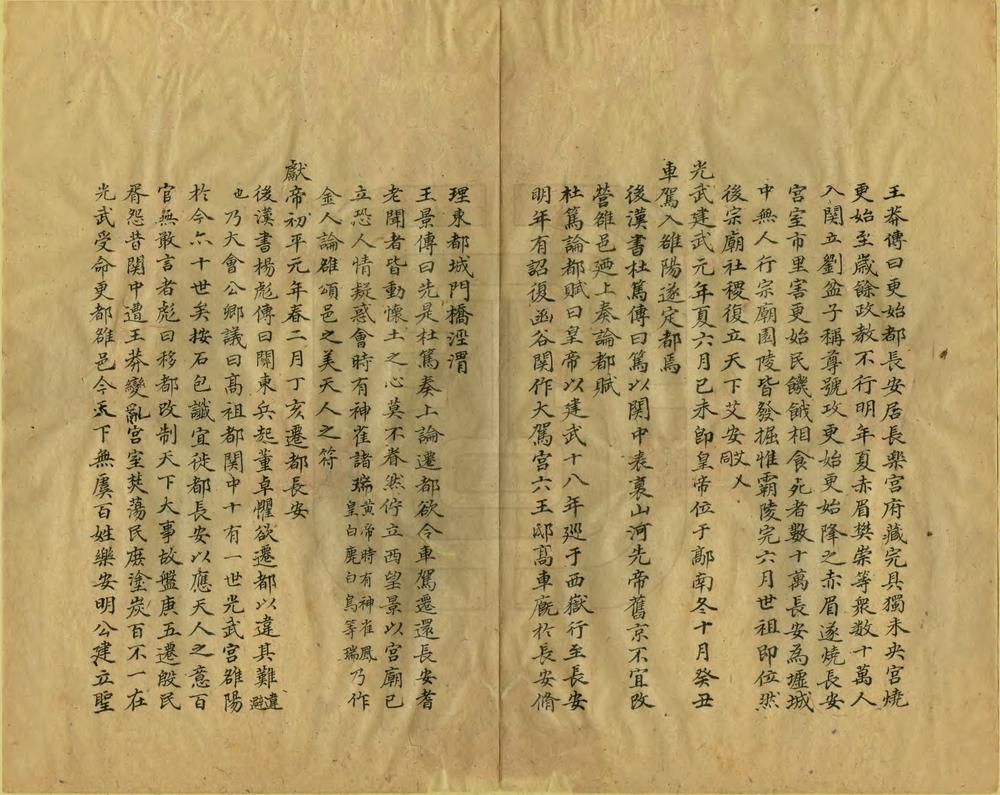 王莽傳曰更始都長安居長樂宮府藏完具獨未央宮燒
更始至歲餘政教不行明年夏赤眉樊崇等衆数十萬人
入関立劉盆子稱尊號攻更始更始降之赤眉遂燒長安
宮室市里害更始民饑餓相食死者數十萬長安為墟城
中無人行宗廟園陵皆發掘惟霸陵完六月世祖即位然
後宗廟社稷復立天下艾安艾同乂
光武建武元年夏六月己未即皇帝位于鄗南冬十月癸丑
車駕入雒陽遂定都焉
後漢書杜篤傳曰篤以関中表裏山河先帝舊京不宜改
營雒邑廼上奏論都賦
杜篤論都賦曰皇帝以建武十八年廵于西嶽行至長安
明年有詔復函谷関作大駕宮六王邸高車廐於長安脩
理東都城門橋涇渭
王景傳曰先是杜篤奏上論遷都欲令車駕遷還長安者
老聞者皆動懷土之心莫不眷然佇立西望景以宮廟已
立恐人情疑惑會時有神雀諸瑞黃帝時有神雀鳳皇白鹿白烏等瑞乃作
金人論雒頌邑之美天人之符
獻帝初平元年春二月丁亥遷都長安
後漢書楊彪傳曰關東兵起董卓懼欲遷都以違其難違避
也乃大會公卿議曰高祖都関中十有一世光武宮雒陽
於今亦十世矣按石包讖宜徙都長安以應天人之意百
官無敢言者彪曰移都改制天下大事故盤庚五遷殷民
胥怨昔関中遭王莽變亂宮室焚蕩民庶塗炭百不一在
光武受命更都雒邑今天下無虞百姓樂安明公建立聖